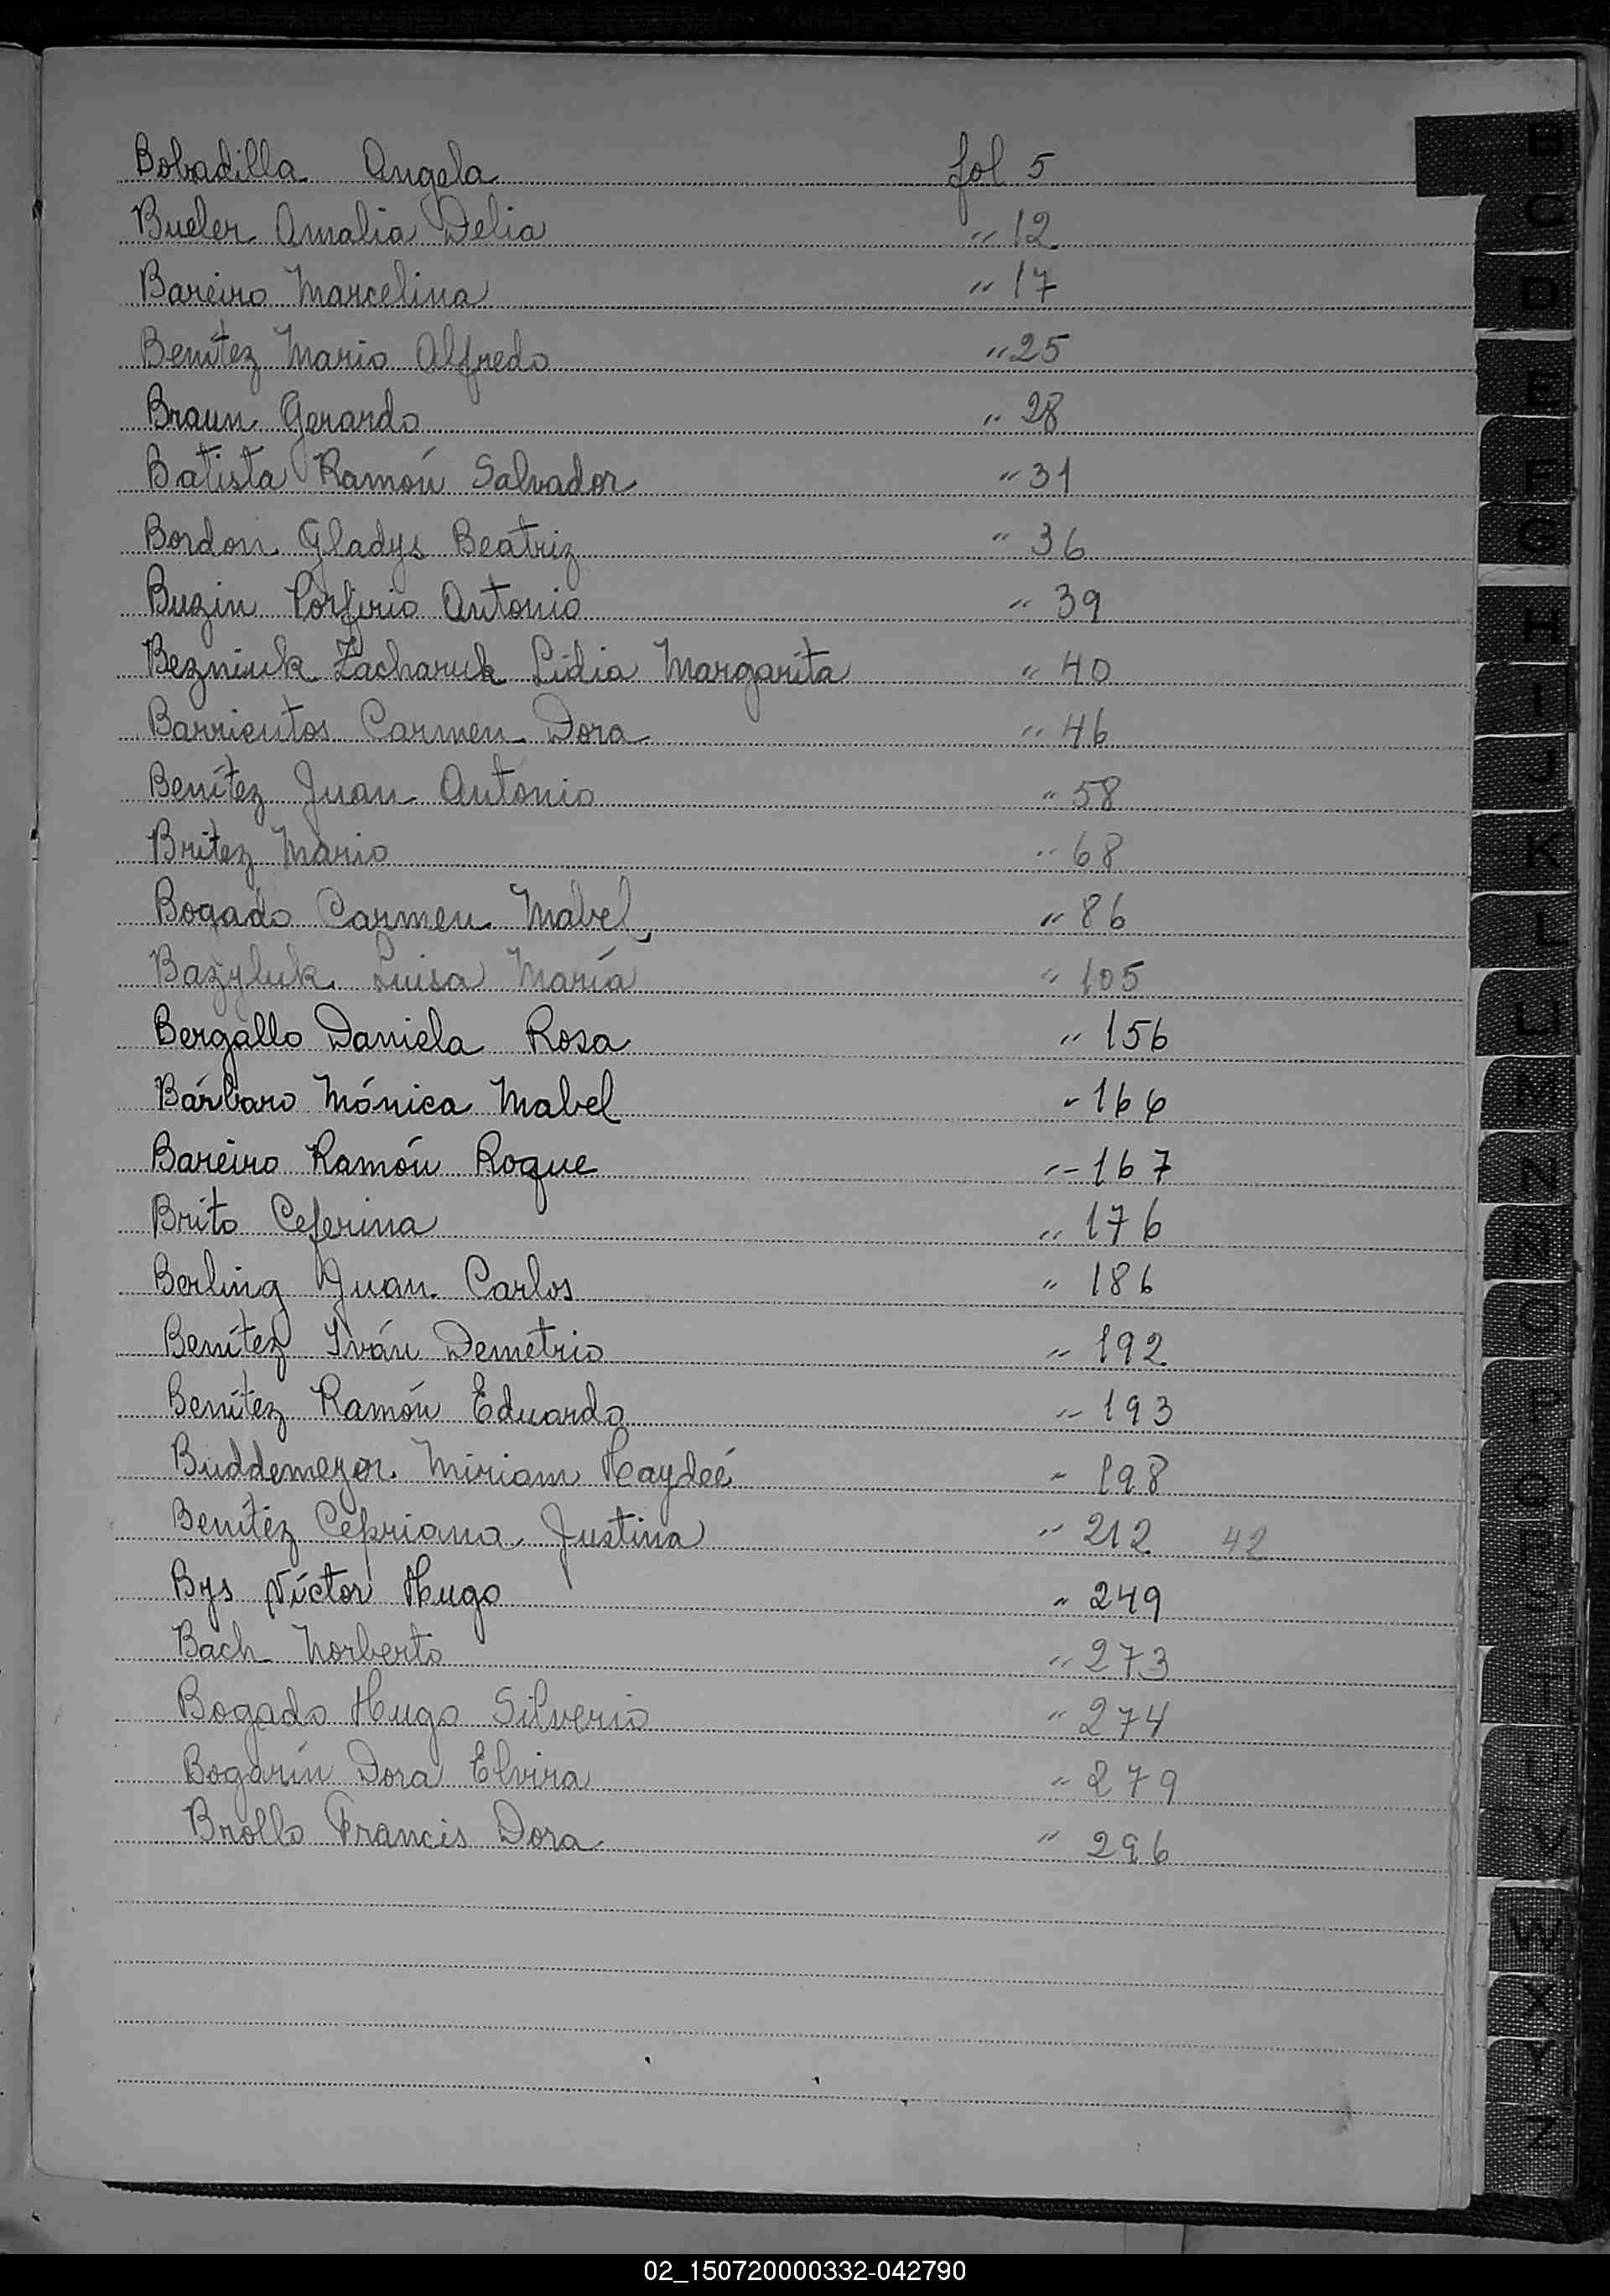 Bobadilla Angela fol 5
Bueler Amalia Delia " 12
Bareiro Marcelina " 17
Benítez Mario Alfredo " 25
Braun Gerardo " 28
Batista Ramón Salvador " 31
Bordon Gladys Beatriz " 36
Buzin Porfirio Antonio " 39
Bezniuk Zacharuk Lidia Margarita " 40
Barrientos Carmen Dora " 46
Benítez Juan Antonio " 58
Britez Mario " 68
Bogado Carmen Mabel " 86
Bazyluk Luisa María " 105
Bergallo Daniela Rosa " 156
Bárbaro Mónica Mabel " 166
Bareiro Ramón Roque " 167
Brito Ceferina " 176
Berling Juan Carlos " 186
Benítez Iván Demetrio " 192
Benítez Ramón Eduardo " 193
Buddemeyer Miriam Haydeé " 198
Benítez Cepriana Justina " 212 42
Bys Víctor Hugo " 249
Bach Norberto " 273
Bogado Hugo Silverio " 274
Bogarín Dora Elvira " 279
Brollo Francis Dora " 296
B
C
D
E
F
G
H
I
J
K
L
LL
M
N
Ñ
O
P
Q
R
S
T
U
V
W
X
Y
Z
02_150720000332-042790